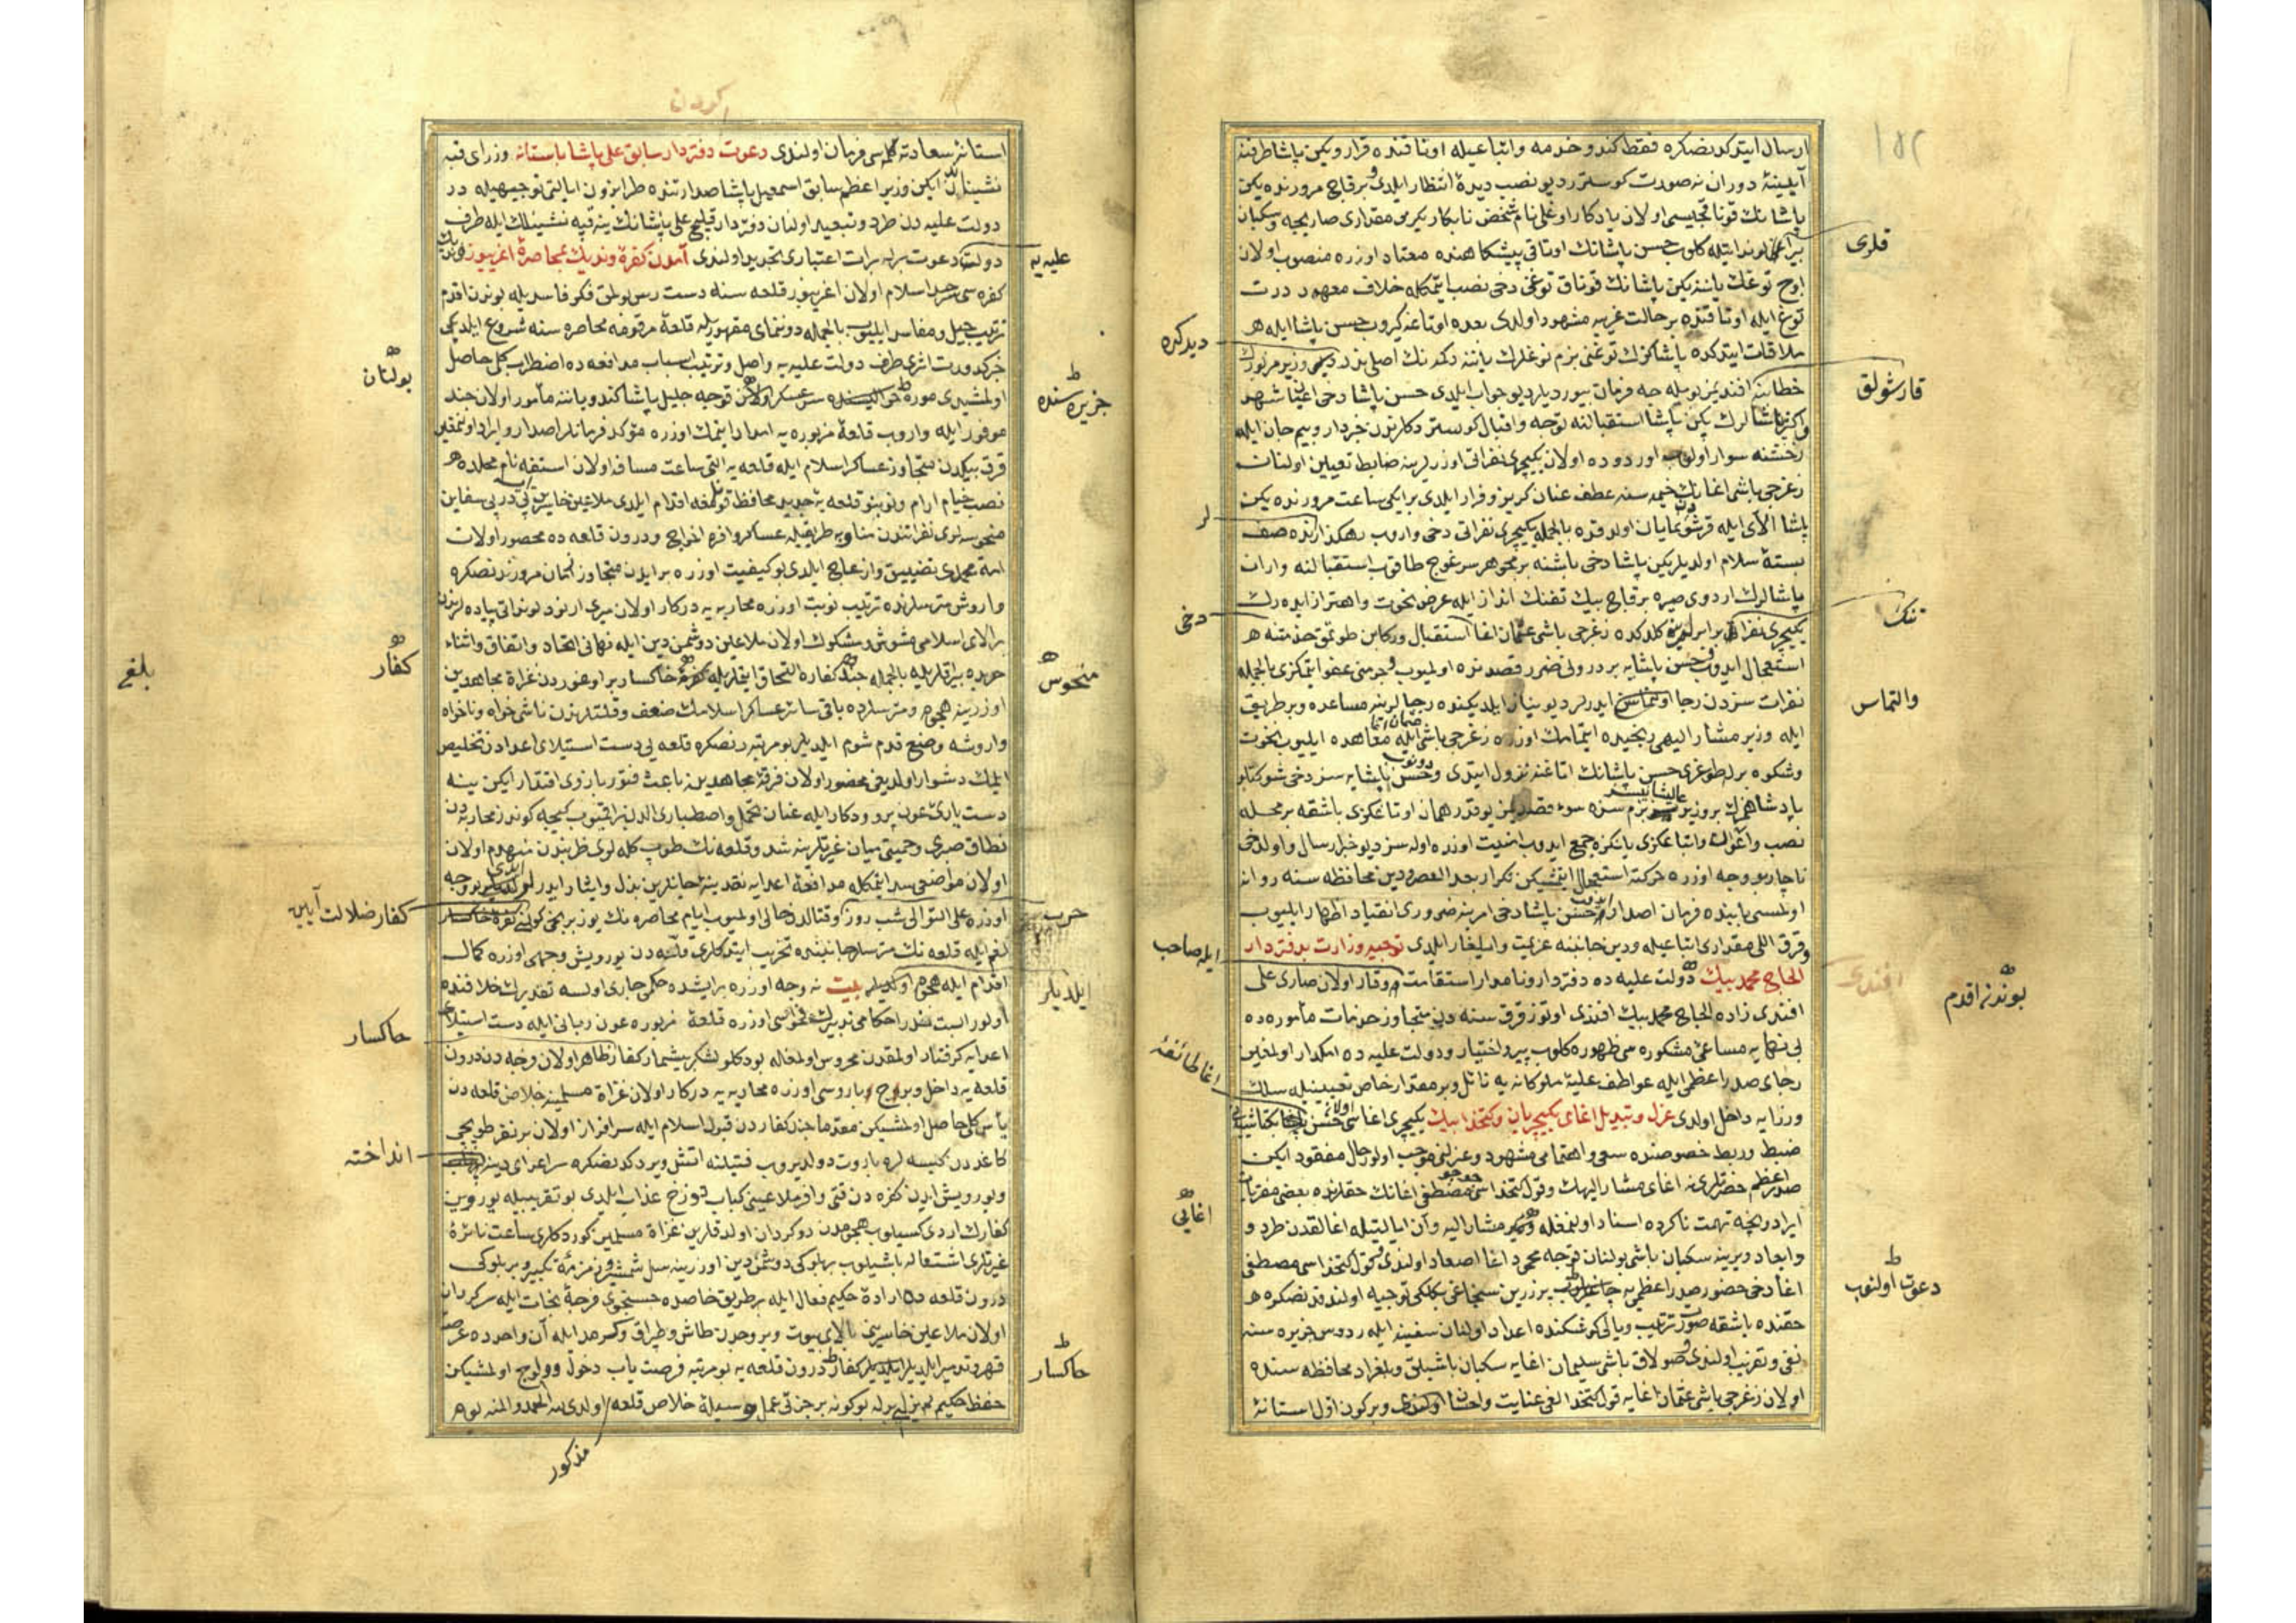 ارسال ایتدكدنصكره فقط كندو خدمه و اتباعیله اوتاقنده قرار و یكن پاشا طرفنه
آیینهٔ دوران نه صورت كوسترر دیو نصب دیدهٔ انتظار ایلدی و برقاچ مرورنده یكن
پاشانك قوناقجیسی اولان یادكار اوغلی نام شخص نابكار یكرمی مقداری صاریجه و سكبان
لوند ایله كلوب حسن پاشانك اوتاقی پیشكاهنده معتاد اوزره منصوب اولان
اوچ توغك یاننه یكن پاشانك قوناق توغنی دخی نصب ایتمكله خلاف معهود درت
توغ ایله اوتاقنده بر حالت غریبه مشهود اولدی بعده اوتاغنه كیروب حسن پاشا ایله
ملاقات ایتدكده پاشاكزك توغنی بزم توغلرك یاننه دكمه نك اصلی ندر دیمی وزیر مزبورك
خطابنه افندیمز بویله جه فرمان بیوردیلر دیو جواب ایلدی حسن پاشا دخی
پاشالرك یكن پاشا استقبالنه توجه و اقبال كوستردكلرندن خبردار و بیم جان ایله
رخشنه سوار اولوب اوردوده اولان یكیچری نفراتی اوزرلرینه ضابط تعیین اولنان
زغرجی باشی اغانك خیمه سنه عطف عنان كریز و فرار ایلدی بر ایكی ساعت مرورنده یكن
پاشا آلای ایله قرشودن نمایان اولدقده بالجمله یكیچری نفراتی دخی واروب رهكذارنده صف
بستهٔ سلام اولدیلر یكن پاشا دخی باشنه بر مجوهر سرغوج طاقوب استقبالنه واران
پاشالرك اردوی صیره برقاچ بیك تفنك انداز ایله عرض نخوت و اهتزاز ایده رك
یكیچری نفراتی برابرلرینه كلدكده زغرجی باشی عثمان اغا استقبال و ركابن طوتمق خدمتنه
استعجال ایدوب حسن پاشایه بر درولی ضرر قصدنده اولمیوب جرمنی عفو ایتمكزی بالجمله
نفرات سزدن رجا و التماس ایدرلر دیو نیاز ایلدیكنده رجالرینه مساعده و بر طریق
ایله وزیر مشار الیهی رنجیده ایتمامك اوزره زغرجی باشی ایله معاهده ایلیوب نخوت
و شكوه برله طوغری حسن پاشانك اتاغنه نزول ایتدی و حسن پاشایه سز دخی شوكتلو
پادشاهمزك بزم سزه سوء قصدیمز یوقدر همان اوتاغكزی باشقه بر محله
نصب و اتباعكزی یانكزه جمع ایدوب امنیت اوزره اوله سز دیو خبر ارسال و اول دخی
ناچار بو وجه اوزره حركته استعجال ایتمشیكن تكرار بعد العصر ودین محافظه سنه روانه
اولمسی بابنده فرمان اصدار حسن پاشا دخی امرینه ضروری انقیاد اظهار ایلیوب
و قرق اللی مقداری اتباعیله ودین جانبنه عزیمت و ایلغار ایلدی توجیه وزارت بدفتردار
الحاج محمد بیك دولت علیه ده دفتردار و نامدار استقامت و وقار اولان صاری علی
افندی زاده الحاج محمد بیك افندی اوتوز قرق سنه دن متجاوز خدمات مأموره ده
بی نهایه مساعیٔ مشكوره سی ظهوره كلوب پیر و اختیار و دولت علیه ده امكدار اولمغین
رجای صدر اعظمی ایله عواطف علیهٔ ملوكانه یه نائل و بر مقدار خاص تعیینیله سلك
وزرایه داخل اولدی عزل و تبدیل اغای یكیچریان و كتخدا بیك یكیچری اغاسی اولان حسن
ضبط و ربط خصوصنده سعی و اهتمامی مشهود و عزلنی موجب اولور حال مفقود ایكن
صدر اعظم حضرتلرینه اغای مشار الیهك و قول كتخداسی مصطفی اغانك حقلرنده بعضی
ایراد و نیجه تهمت ناكرده اسناد اولنمغله مشار الیه وان ایالتیله اغالقدن طرد و
و ابعاد و یرینه سكبان باشی بولنان قوجه محمود اغا اصعاد اولندی قول كتخداسی مصطفی
اغا دخی حضور صدر اعظمی یه برزرین سنجاغی بكلكی توجیه اولندقدنصكره
حقنده باشقه صورت ترتیب و یالی كوشكنده اعداد اولنان سفینه ایله ردوس جزیره سنه
نفی و تغریب اولندی صولاق باشی سلیمان اغایه سكبان باشیلق و بلغراد محافظه سنده
اولان زغرجی باشی عثمان اغایه قول كتخدالغی عنایت و احسان اولندی و بركون اول استانهٔ
قلری
دیدكده
قارشولق
لر
تنك
دخی
والتماس
ایله صاحب
افندی
بوندن اقدم
اغا طائفهٔ
اغایی
دعوت اولنوب
استانهٔ سعادته كلمسی فرمان اولندی دعوت دفتردار سابق علی پاشا باستانه وزرای قبه
نشیناندن ایكن وزیر اعظم سابق اسمعیل پاشا صدارتنده طرابزون ایالتی توجیهیله در
دولت علیه دن طرد و تبعید اولنان دفتردار قلیچ علی پاشانك ینه قبه نشینلك ایله طرف
دولته دعوت برله برات اعتباری تجدید اولندی آمدن كفرهٔ وندیك بمحاصرهٔ اغریبوز
كفره سی سرحد اسلام اولان اغریبوز قلعه سنه دست رس بولمق فكر فاسدیله بوندن اقدم
ترتیب حیل و مفاسد ایلیوب بالجمله دونمای مقهوریله قلعهٔ مرقومه محاصره سنه شروع ایلدیكی
خبر كدورت اثری طرف دولت علیه یه واصل و ترتیب اسباب مدافعه ده اضطراب كلی حاصل
اولمشیدی موره سر عسكر اولان قوجه خلیل پاشا كندو یاننه مأمور اولان جند
موفور ایله واروب قلعهٔ مزبوره یه امداد ایتمك اوزره مؤكد فرمانلر اصدار و ایراد اولنمغین
قرق بیكدن متجاوز عساكر اسلام ایله قلعه یه التی ساعت مسافه اولان استفه نام محلده
نصب خیام ارام و نوبتو قلعه یه جدید محافظ قونلمغه اقدام ایلدی ملاعین خاسرین پی در پی سفاین
منحوسه لری نفراتندن مناوبه طریقیله عساكر وافره اخراج و درون قلعه ده محصور اولان
امة محمدی تضییق و ازعاج ایلدی بو كیفیت اوزره بر ایدن متجاوز زمان مرورندنصكره
واروش متریسلرنده ترتیب نوبت اوزره محاربه یه دركار اولان میری ارنود لونداتی پیاده لرندن
بر الای اسلامی مشوش و مشكوك اولان ملاعین دوشمن دین ایله نهانی اتحاد و اتفاق و اثناء
حربده بیراقلریله بالجمله جند كفاره التحاق ایتملریله خاكسار بر اوغوردن غزاة مجاهدین
اوزرینه هجوم و متریسلرده باقی سائر عساكر اسلامك ضعف و قلتلرندن ناشی خواه و ناخواه
واروشه وضع قدم شوم ایلدیلر بو مرتبه دنصكره قلعه یی دست استیلای اعدادن تخلیص
ایلمك دشوار اولدیغی محصور اولان فرقهٔ مجاهدینه باعث فتور بازوی اقتدار ایكن ینه
دست یارئ عون پروردكار ایله عنان تحمل و اصطباری الدن براقمیوب كیجه كوندز محاربه دن
نطاق صبری و حمیتی میان غیرتلرینه شد و قلعه نك طوپ كله لری ضربندن منهدم اولان
اولان مواضعی سد ایتمكله مدافعهٔ اعدایه نقدینهٔ جانلرین بذل و ایثار ایدرلر ایدی بو وجه
اوزره علی التوالی شب و روز و قتالدن خالی اولمیوب ایام محاصره نك یوز برنجی كونی كفرهٔ خاكسار
لغم ایله قلعه نك متریسلر جانبنده تخریب ایتدكلری قله دن یورویش و جهی اوزره كمال
اقدام ایله هجوم بیت نه وجه اوزره برایشده حكمی جاری اولسه تقدیرك خلافنده
اولور البت احكامی تدبیرك فحواسی اوزره قلعهٔ مزبوره عون ربانی ایله دست استیلای
اعدایه كرفتار اولمقدن محروس اولمغاله بو دكلو لشكر بیشمار كفار ظاهر اولان رخنه دن درون
قلعه یه داخل و بروج و باروسی اوزره محاربه یه دركار اولان غزاة مسلمینه خلاص قلعه دن
یأس كلی حاصل اولمشیكن مقدما جند كفاردن قبول اسلام ایله سرافراز اولان بر نفر طوپجی
كاغددن كیسه لره باروت دولدیروب فتیلنه اتش ویردكدنصكره سر اعدای دینه
و یورویش ایدن كفره دن قتی وافر ملاعینی كباب دوزخ عذاب ایلدی بو تقریبیله یورویین
كفارك اردی كسیلوب هجومدن روكردان اولدقلرین غزاة مسلمین كوردكلری ساعت نائرهٔ
غیرتلری اشتعاله باشلیوب بر بلوكی دوشمن دین اوزرینه سل شمشیر و زمزمهٔ تكبیر و بر بلوكی
درون قلعه ده ارادهٔ حكیم فعال ایله بر طریق خاصده جستجوی فرجهٔ نجات ایله سركردان
اولان ملاعین خاسرینی بالای بیوت و بروجدن طاش و طپراق و كسر مد ایله آن واحدده عرضهٔ
قهر و تدمیر ایلدیلر كفار درون قلعه یه بو مرتبه فرصت یاب دخول و ولوج اولمشیكن
حفظ حكیم لم یزلی برله بو كونه بر جزئی عمل وسیلهٔ خلاص قلعه اولدی لله الحمد و المنه بو
علیه یه
بولنان
جزیره سنده
كفار
منحوس
بلغی
كفار ضلالت آیین
حرب
ایلدیلر
خاكسار
انداخته
خاكسار
مذكور